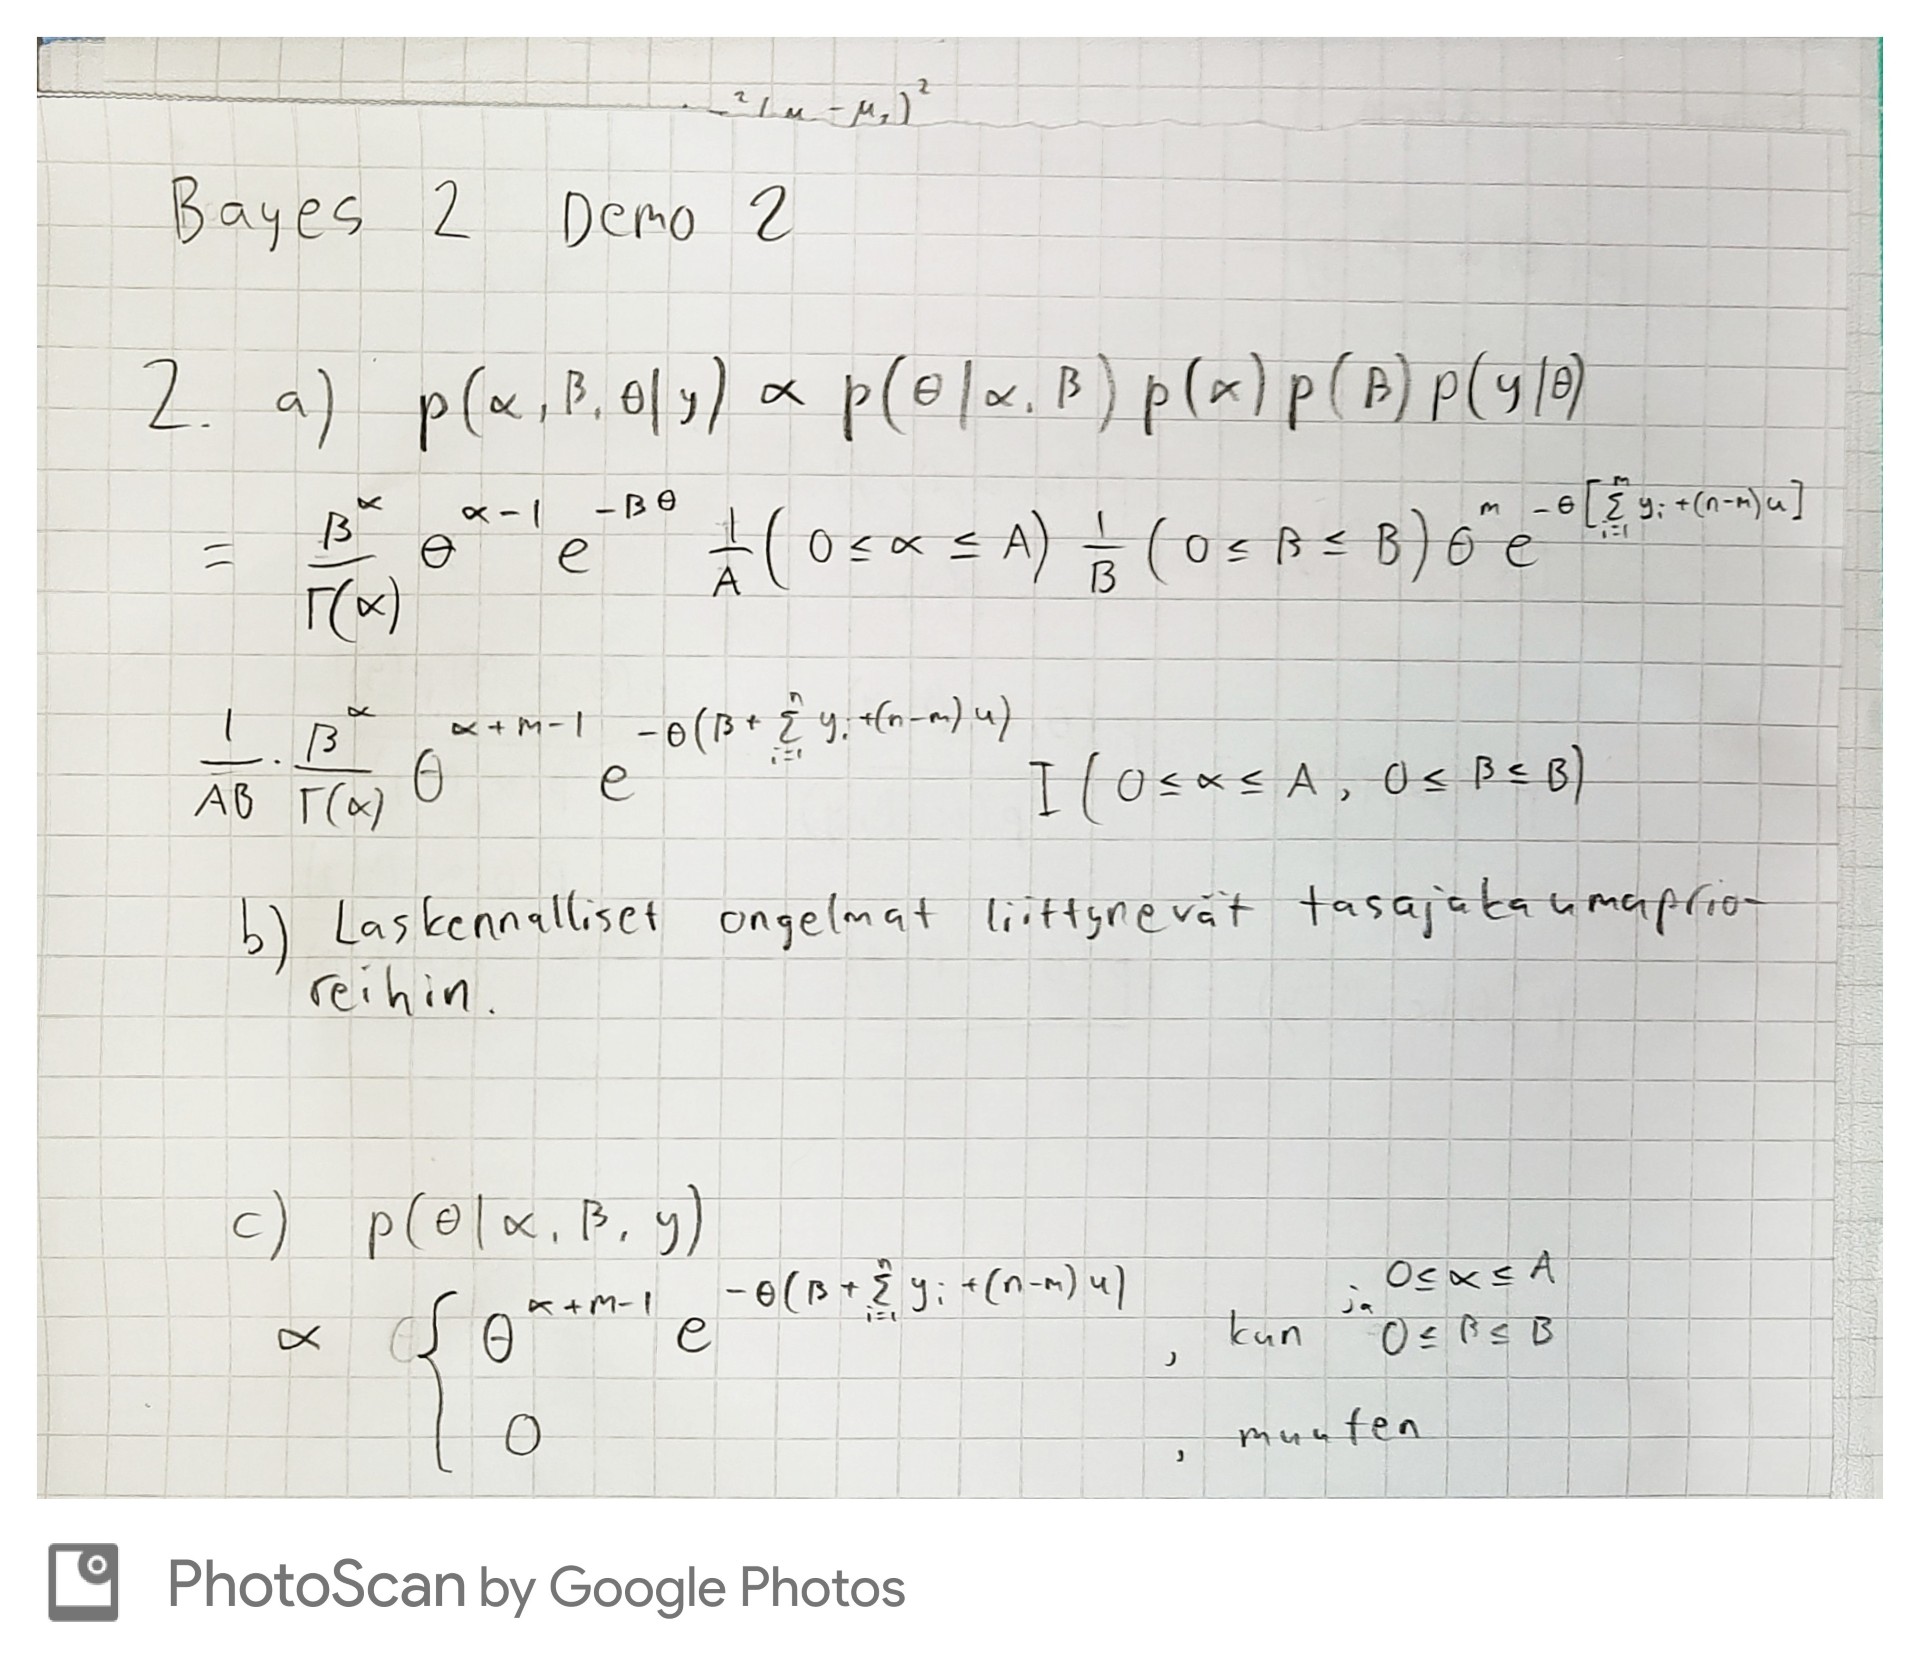 ²(μ-μ₁)²
Bayes 2 Demo 2
2. a) p(α, β, θ|y) ∝ p(θ|α, β) p(α) p(β) p(y|θ)
= β^α/Γ(α) θ^(α-1) e^(-βθ) 1/A (0 ≤ α ≤ A) 1/B (0 ≤ β ≤ B) θ^m e^(-θ[∑_{i=1}^m y_i + (n-m)u])
1/AB · β^α/Γ(α) θ^(α+m-1) e^(-θ(β + ∑_{i=1}^n y_i + (n-m)u)) I(0 ≤ α ≤ A, 0 ≤ β ≤ B)
b) Laskennalliset ongelmat liittynevät tasajakaumaprio-
reihin.
c) p(θ|α, β, y)
∝ { θ^(α+m-1) e^(-θ(β + ∑_{i=1}^n y_i + (n-m)u)) , kun 0 ≤ α ≤ A ja 0 ≤ β ≤ B
0 , muuten
PhotoScan by Google Photos